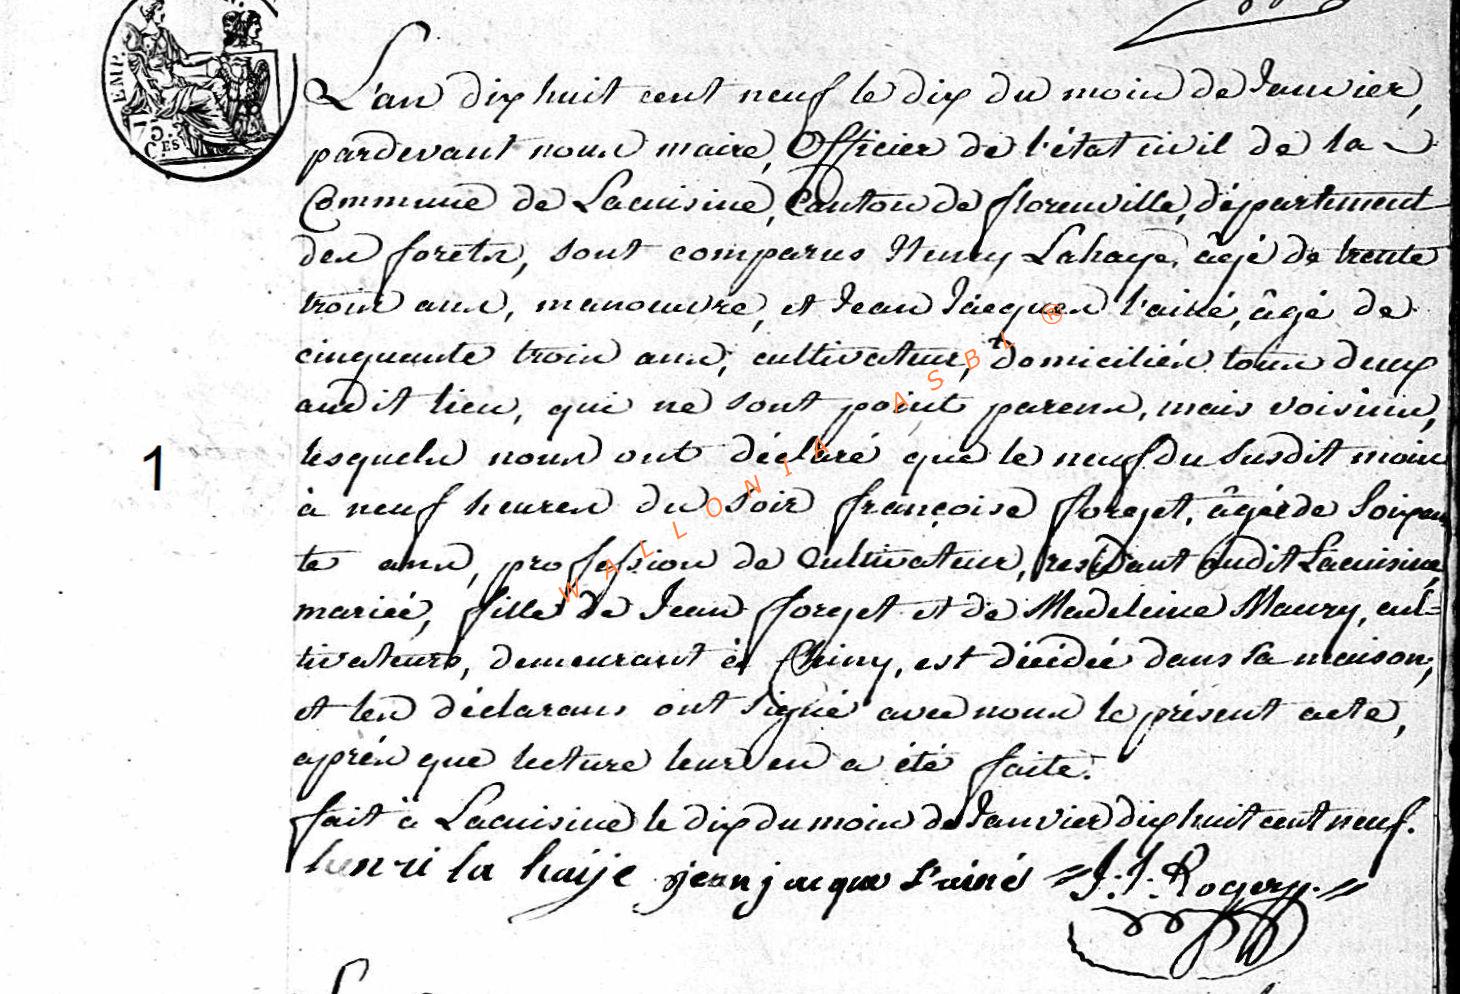 EMP.
75.
C.ES
L'an dix huit cent neuf le dix du mois de Janvier,
pardevant nous maire, Officier de l'état civil de la
Commune de Lacuisine, Canton de florenville, département
des forêts, sont comparus Henry Lahaye, âgé de trente
trois ans, manoeuvre, et Jean Jacques l'ainé, âgé de
cinquante trois ans, cultivateur, domiciliés tous deux
audit lieu, qui ne sont point parens, mais voisins,
lesquels nous ont déclaré que le neuf du susdit mois
1
à neuf heures du soir françoise forget, âgée de soixan
te ans, profession de Cultivateur, residant audit Lacuisine,
mariée, fille de Jean forget et de Madeleine Maury, cul=
tivateurs, demeurant à Chiny, est décidée dans sa maison,
et les déclarans ont signé avec nous le présent acte,
après que lecture leur en a été faite.
fait à Lacuisine le dix du mois de Janvier dix huit cent neuf.
henri la haije jean jacque l'ainé J. J. Rogery
WALLONIA ASBL ®